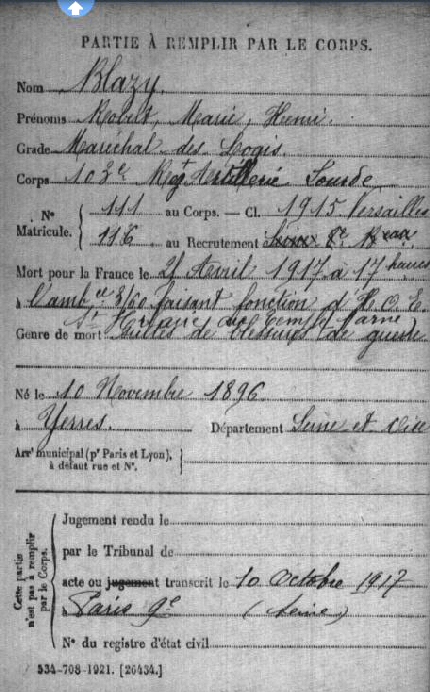 PARTIE À REMPLIR PAR LE CORPS.
Nom Blazy.
Prénoms Robert, Marie, Henri.
Grade Maréchal des Logis.
Corps 103e Regt Artillerie Lourde
N° Matricule. { 111 au Corps. — Cl. 1915 Versailles
116 au Recrutement
Mort pour la France le 21 Avril 1917 à 17 heures
à l'amb ce 8/60 faisant fonction d'H.O.E.
St Hilaire au Temple Marne
Genre de mort suites de blessures de guerre
Né le 10 Novembre 1896
à Yerres. Département Seine et Oise
Arrt municipal (pr Paris et Lyon), à défaut rue et N°.
Cette partie n'est pas à remplir par le Corps.
Jugement rendu le
par le Tribunal de
acte ou jugement transcrit le 10 Octobre 1917
à Paris 9e (Seine)
N° du registre d'état civil
534-708-1921. [26434.]